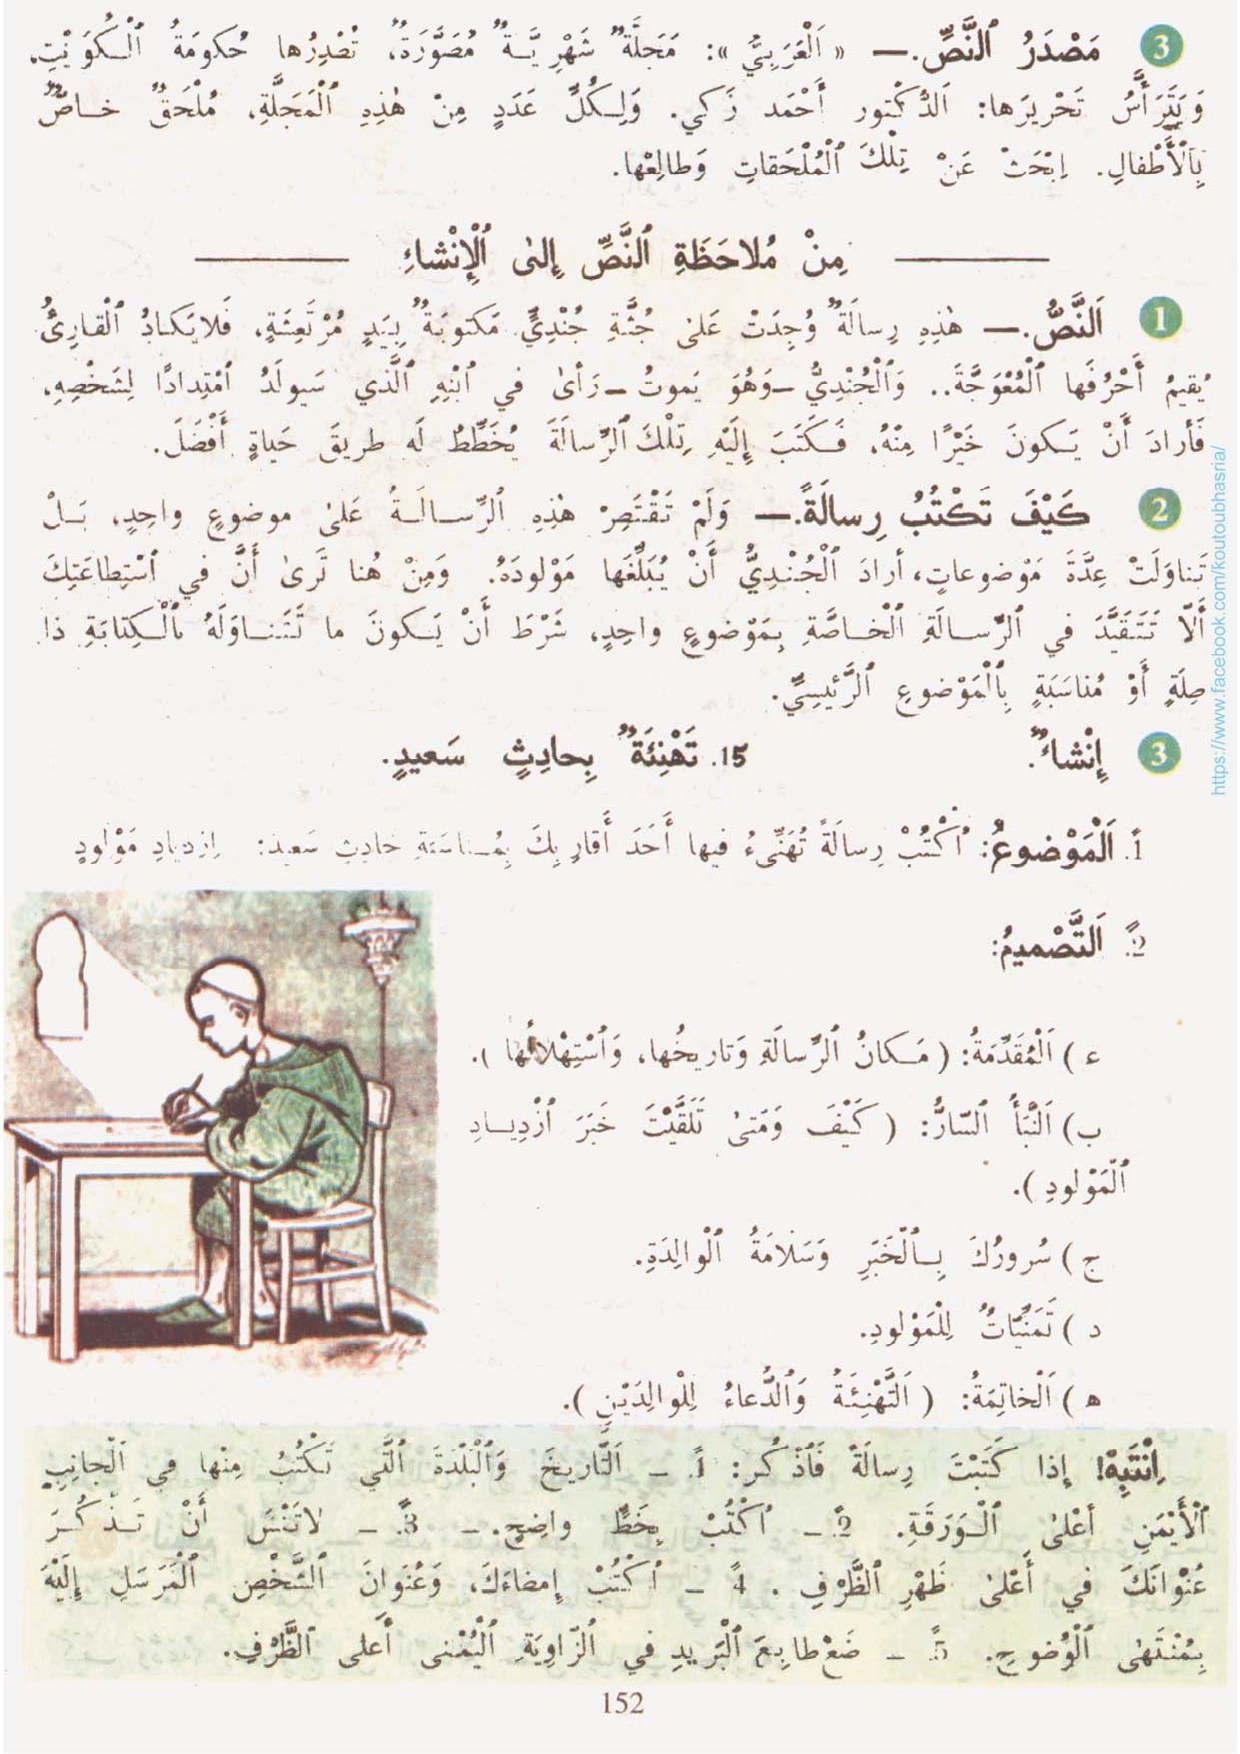 3 مَصْدَرُ ٱلنَّصِّ.— « اَلْعَرَبِيُّ »: مَجَلَّةٌ شَهْرِيَّةٌ مُصَوَّرَةٌ، تُصْدِرُها حُكومَةُ ٱلْكُوَيْتِ،
وَيَتَرَأَّسُ تَحْريرَها: اَلدُّكْتور أَحْمَد زَكي. وَلِكُلِّ عَدَدٍ مِنْ هٰذِهِ ٱلْمَجَلَّةِ، مُلْحَقٌ خاصٌّ
بِٱلْأَطْفالِ. اِبْحَثْ عَنْ تِلْكَ ٱلْمُلْحَقاتِ وَطالِعْها.
مِنْ مُلاحَظَةِ ٱلنَّصِّ إِلىٰ ٱلْإِنْشاءِ
1 اَلنَّصُّ.— هٰذِهِ رِسالَةٌ وُجِدَتْ عَلىٰ جُثَّةِ جُنْدِيٍّ مَكتوبَةٌ بِيَدٍ مُرْتَعِشَةٍ، فَلايَكادُ ٱلْقارِئُ
يُقيمُ أَحْرُفَها ٱلْمُعْوَجَّةَ.. وَٱلْجُنْدِيُّ —وَهُوَ يَموتُ— رَأىٰ في ٱبْنِهِ ٱلَّذي سَيولَدُ ٱمْتِدادًا لِشَخْصِهِ،
فَأَرادَ أَنْ يَكونَ خَيْرًا مِنْهُ، فَكَتَبَ إِلَيْهِ تِلْكَ ٱلرِّسالَةَ يُخَطِّطُ لَه طريقَ حَياةٍ أَفْضَلَ.
2 كَيْفَ تَكْتُبُ رِسالَةً.— وَلَمْ تَقْتَصِرْ هٰذِهِ ٱلرِّسالَةُ عَلىٰ موضوعٍ واحِدٍ، بَلْ
تَناوَلَتْ عِدَّةَ مَوْضوعاتٍ، أرادَ ٱلْجُنْدِيُّ أَنْ يُبَلِّغَها مَوْلودَهُ. وَمِنْ هُنا تَرىٰ أَنَّ في ٱسْتِطاعَتِكَ
أَلّا تَتَقَيَّدَ في ٱلرِّسالَةِ ٱلْخاصَّةِ بِمَوْضوعٍ واحِدٍ، شَرْطَ أَنْ يَكونَ ما تَتَناوَلُهُ بِٱلْكِتابَةِ ذا
صِلَةٍ أَوْ مُناسَبَةٍ بِٱلْمَوْضوعِ ٱلرَّئيسِيِّ.
3 إِنْشاءٌ. 15. تَهْنِئَةٌ بِحادِثٍ سَعيدٍ.
1. اَلْمَوْضوعُ: اُكْتُبْ رِسالَةً تُهَنِّىءُ فيها أَحَدَ أَقارِبِكَ بِمُناسَبَةِ حادِثٍ سَعيد: اِزدِيادِ مَوْلودٍ
2. اَلتَّصْميمُ:
ء ) اَلْمُقَدِّمَةُ: ( مَكانُ ٱلرِّسالَةِ وَتاريخُها، وَٱسْتِهْلالُها ).
ب) اَلنَّبَأُ ٱلسّارُّ: ( كَيْفَ وَمَتىٰ تَلَقَّيْتَ خَبَرَ ٱزْدِيادِ
ٱلْمَوْلودِ ).
ج ) سُرورُكَ بِٱلْخَبَرِ وَسَلامَةُ ٱلْوالِدَةِ.
د ) تَمَنِّياتٌ لِلْمَوْلودِ.
ه ) اَلْخاتِمَةُ: ( اَلتَّهْنِئَةُ وَٱلدُّعاءُ لِلْوالِدَيْنِ ).
اِنْتَبِهْ! إِذا كَتَبْتَ رِسالَةً فَٱذْكُر: 1. — اَلتّاريخَ وَٱلْبَلْدَةَ ٱلَّتي تَكْتُبُ مِنْها في ٱلْجانِبِ
ٱلْأَيْمَنِ أَعْلىٰ ٱلْوَرَقَةِ. 2. — اُكْتُبْ بِخَطٍّ واضِحٍ. — 3. — لاتَنْسَ أَنْ تَذْكُرَ
عُنْوانَكَ في أَعْلىٰ ظَهْرِ ٱلظَّرْفِ . 4 — اُكْتُبْ إِمضاءَكَ، وَعُنْوانَ ٱلشَّخْصِ ٱلْمُرْسَلِ إِلَيْهِ
بِمُنْتَهىٰ ٱلْوُضوحِ. 5. — ضَعْ طابِعَ ٱلْبَريدِ في ٱلزّاوِيَةِ ٱلْيُمْنى أَعلى ٱلظَّرْفِ.
152
https://www.facebook.com/koutoubhasria/